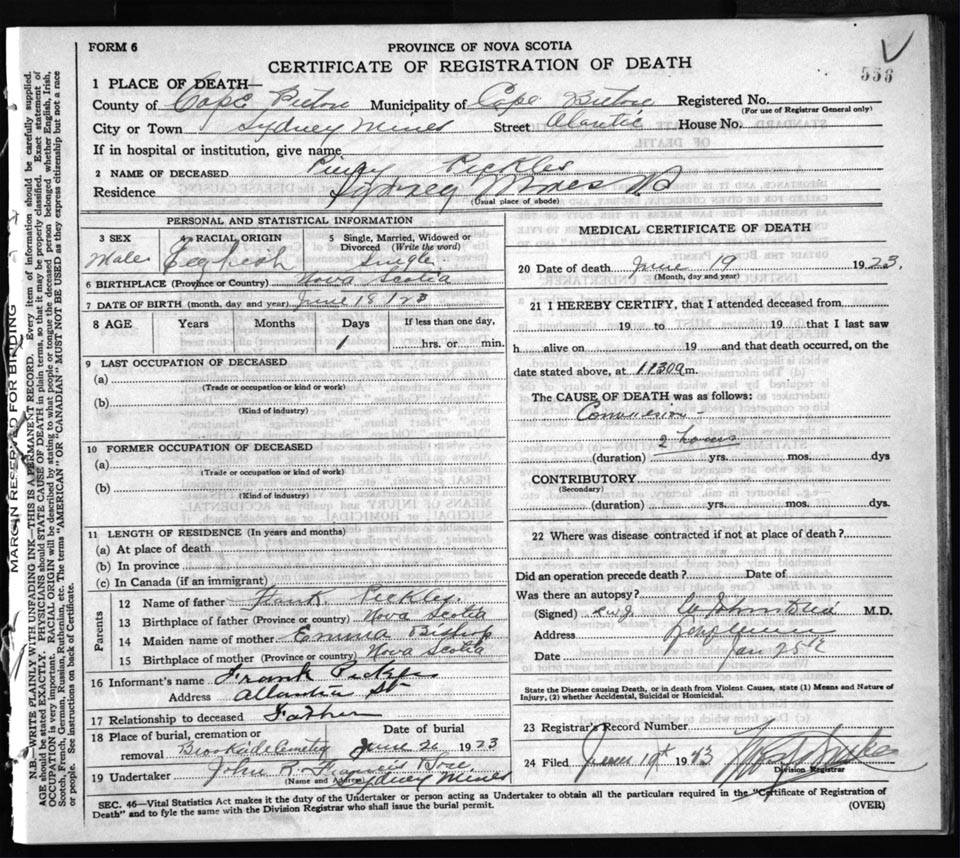 FORM 6
PROVINCE OF NOVA SCOTIA
CERTIFICATE OF REGISTRATION OF DEATH
556
1 PLACE OF DEATH—
County of Cape Breton Municipality of Cape Breton Registered No.
(For use of Registrar General only)
City or Town Sydney Mines Street Atlantic House No.
If in hospital or institution, give name
2 NAME OF DECEASED Pickles
Residence Sydney Mines NS
(Usual place of abode)
PERSONAL AND STATISTICAL INFORMATION
3 SEX Male
4 RACIAL ORIGIN English
5 Single, Married, Widowed or Divorced (Write the word) Single
6 BIRTHPLACE (Province or Country) Nova Scotia
7 DATE OF BIRTH (month, day and year) June 18 / 23
8 AGE Years Months Days If less than one day,
1 hrs. or min.
9 LAST OCCUPATION OF DECEASED
(a)
(Trade or occupation or kind or work)
(b)
(Kind of industry)
10 FORMER OCCUPATION OF DECEASED
(a)
(Trade or occupation or kind of work)
(b)
(Kind of industry)
11 LENGTH OF RESIDENCE (In years and months)
(a) At place of death
(b) In province
(c) In Canada (if an immigrant)
Parents
12 Name of father Frank Pickles
13 Birthplace of father (Province or country) Nova Scotia
14 Maiden name of mother Emma Bishop
15 Birthplace of mother (Province or country) Nova Scotia
16 Informant's name Frank Pickles
Address Atlantic St
17 Relationship to deceased Father
18 Place of burial, cremation or removal Brookside Cemetery Date of burial June 20 1923
19 Undertaker John R. Francis
(Name and Address) Sydney Mines
MEDICAL CERTIFICATE OF DEATH
20 Date of death June 19 1923.
(Month, day and year)
21 I HEREBY CERTIFY, that I attended deceased from
19 to 19 that I last saw
h alive on 19 and that death occurred, on the
date stated above, at 11 30 a m.
The CAUSE OF DEATH was as follows:
2 hours
(duration) yrs. mos. dys
CONTRIBUTORY
(Secondary)
(duration) yrs. mos. dys.
22 Where was disease contracted if not at place of death?
Did an operation precede death? Date of
Was there an autopsy?
(Signed) M.D.
Address
Date Jan 25th
State the Disease causing Death, or in death from Violent Causes, state (1) Means and Nature of
Injury, (2) whether Accidental, Suicidal or Homicidal.
23 Registrar's Record Number
24 Filed June 19th 1923
Division Registrar
SEC. 46—Vital Statistics Act makes it the duty of the Undertaker or person acting as Undertaker to obtain all the particulars required in the "Certificate of Registration of
Death" and to fyle the same with the Division Registrar who shall issue the burial permit.
(OVER)
MARGIN RESERVED FOR BINDING
N.B.—WRITE PLAINLY WITH UNFADING INK—THIS IS A PERMANENT RECORD. Every item of information should be carefully supplied.
AGE should be stated EXACTLY. PHYSICIANS should STATE CAUSE OF DEATH in plain terms, so that it may be properly classified. Exact statement of
OCCUPATION is very important. RACIAL ORIGIN will be described by stating to what people or tongue the deceased person belonged whether English, Irish,
Scotch, French, German, Russian, Ruthenian, etc. The terms "AMERICAN" OR "CANADIAN" MUST NOT BE USED as they express citizenship but not a race
or people. See instructions on back of Certificate.